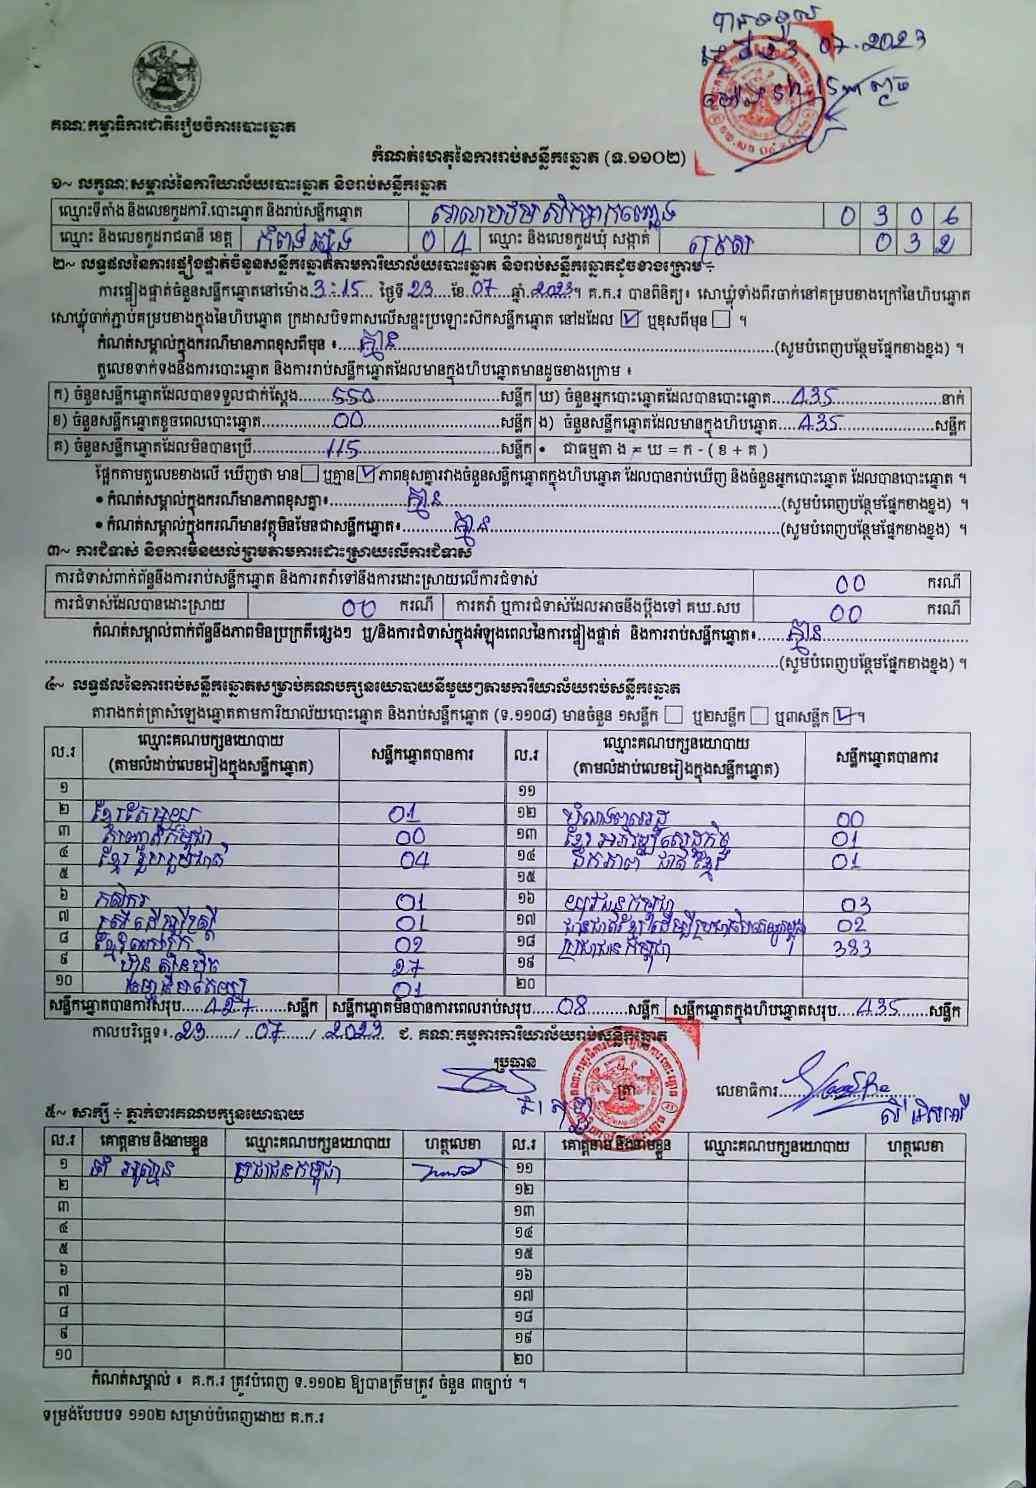 បានទទួល
ថ្ងៃទី 23.07.2023
គណៈកម្មាធិការជាតិរៀបចំការបោះឆ្នោត
កំណត់ហេតុនៃការរាប់សន្លឹកឆ្នោត (ទ.១១០២)
១~ លក្ខណៈសម្គាល់នៃការិយាល័យបោះឆ្នោត និងរាប់សន្លឹកឆ្នោត
ឈ្មោះទីតាំង និងលេខកូដការិ.បោះឆ្នោត និងរាប់សន្លឹកឆ្នោត 0 3 0 6
ឈ្មោះ និងលេខកូដរាជធានី ខេត្ត កំពង់ឆ្នាំង 0 4 ឈ្មោះ និងលេខកូដឃុំ សង្កាត់ 0 3 2
២~ លទ្ធផលនៃការផ្ទៀងផ្ទាត់ចំនួនសន្លឹកឆ្នោតតាមការិយាល័យបោះឆ្នោត និងរាប់សន្លឹកឆ្នោតដូចខាងក្រោម ÷
ការផ្ទៀងផ្ទាត់ចំនួនសន្លឹកឆ្នោតនៅម៉ោង 3:15 ថ្ងៃទី 23 ខែ 07 ឆ្នាំ 2023 ។ គ.ក.រ បានពិនិត្យ៖ សោឃ្លុំទាំងពីរចាក់នៅគម្របខាងក្រៅនៃហិបឆ្នោត
សោឃ្លុំចាក់ភ្ជាប់គម្របខាងក្នុងនៃហិបឆ្នោត ក្រដាសបិទពាសលើសន្ទះប្រឡោះស៊កសន្លឹកឆ្នោត នៅដដែល ☑ ឬខុសពីមុន ☐ ។
កំណត់សម្គាល់ក្នុងករណីមានភាពខុសពីមុន ៖ គ្មាន (សូមបំពេញបន្ថែមផ្នែកខាងខ្នង) ។
តួលេខទាក់ទងនឹងការបោះឆ្នោត និងការរាប់សន្លឹកឆ្នោតដែលមានក្នុងហិបឆ្នោតមានដូចខាងក្រោម ៖
ក) ចំនួនសន្លឹកឆ្នោតដែលបានទទួលជាក់ស្តែង 550 សន្លឹក ឃ) ចំនួនអ្នកបោះឆ្នោតដែលបានបោះឆ្នោត 435 នាក់
ខ) ចំនួនសន្លឹកឆ្នោតខូចពេលបោះឆ្នោត 00 សន្លឹក ង) ចំនួនសន្លឹកឆ្នោតដែលមានក្នុងហិបឆ្នោត 435 សន្លឹក
គ) ចំនួនសន្លឹកឆ្នោតដែលមិនបានប្រើ 115 សន្លឹក • ជាធម្មតា ង = ឃ = ក - ( ខ + គ )
ផ្អែកតាមតួលេខខាងលើ ឃើញថា មាន ☐ ឬគ្មាន ☑ ភាពខុសគ្នារវាងចំនួនសន្លឹកឆ្នោតក្នុងហិបឆ្នោត ដែលបានរាប់ឃើញ និងចំនួនអ្នកបោះឆ្នោត ដែលបានបោះឆ្នោត ។
• កំណត់សម្គាល់ក្នុងករណីមានភាពខុសគ្នា៖ គ្មាន (សូមបំពេញបន្ថែមផ្នែកខាងខ្នង) ។
• កំណត់សម្គាល់ក្នុងករណីមានវត្ថុមិនមែនជាសន្លឹកឆ្នោត៖ គ្មាន (សូមបំពេញបន្ថែមផ្នែកខាងខ្នង) ។
៣~ ការជំទាស់ និងការមិនយល់ព្រមតាមការដោះស្រាយលើការជំទាស់
ការជំទាស់ពាក់ព័ន្ធនឹងការរាប់សន្លឹកឆ្នោត និងការតវ៉ាទៅនឹងការដោះស្រាយលើការជំទាស់ 00 ករណី
ការជំទាស់ដែលបានដោះស្រាយ 00 ករណី ការតវ៉ា ឬការជំទាស់ដែលអាចនឹងប្តឹងទៅ គឃ.សប 00 ករណី
កំណត់សម្គាល់ពាក់ព័ន្ធនឹងភាពមិនប្រក្រតីផ្សេងៗ ឬ/និងការជំទាស់ក្នុងអំឡុងពេលនៃការផ្ទៀងផ្ទាត់ និងការរាប់សន្លឹកឆ្នោត៖ គ្មាន
(សូមបំពេញបន្ថែមផ្នែកខាងខ្នង) ។
៤~ លទ្ធផលនៃការរាប់សន្លឹកឆ្នោតសម្រាប់គណបក្សនយោបាយនីមួយៗតាមការិយាល័យរាប់សន្លឹកឆ្នោត
តារាងកត់ត្រាសំឡេងឆ្នោតតាមការិយាល័យបោះឆ្នោត និងរាប់សន្លឹកឆ្នោត (ទ.១១០៨) មានចំនួន ១សន្លឹក ☐ ឬ២សន្លឹក ☐ ឬ៣សន្លឹក ☑ ។
ល.រ ឈ្មោះគណបក្សនយោបាយ (តាមលំដាប់លេខរៀងក្នុងសន្លឹកឆ្នោត) សន្លឹកឆ្នោតបានការ ល.រ ឈ្មោះគណបក្សនយោបាយ (តាមលំដាប់លេខរៀងក្នុងសន្លឹកឆ្នោត) សន្លឹកឆ្នោតបានការ
១ ១១
២ ខ្មែរតែមួយ 01 ១២ 00
៣ 00 ១៣ ខ្មែរអភិវឌ្ឍន៍សេដ្ឋកិច្ច 01
៤ ខ្មែររួបរួមជាតិ 04 ១៤ ឯកភាពជាតិខ្មែរ 01
៥ ១៥
៦ កសិករ 01 ១៦ យុវជនកម្ពុជា 03
៧ ស្ត្រីដើម្បីស្ត្រី 01 ១៧ 02
៨ 02 ១៨ ប្រជាជនកម្ពុជា 383
៩ ហ្វ៊ុនស៊ិនប៉ិច 27 ១៩
១០ 01 ២០
សន្លឹកឆ្នោតបានការសរុប 427 សន្លឹក សន្លឹកឆ្នោតមិនបានការពេលរាប់សរុប 08 សន្លឹក សន្លឹកឆ្នោតក្នុងហិបឆ្នោតសរុប 435 សន្លឹក
កាលបរិច្ឆេទ៖ 23 / 07 / 2023 ជ. គណៈកម្មការការិយាល័យរាប់សន្លឹកឆ្នោត
ប្រធាន ត្រា លេខាធិការ
៥~ សាក្សី ÷ ភ្នាក់ងារគណបក្សនយោបាយ
ល.រ គោត្តនាម និងនាមខ្លួន ឈ្មោះគណបក្សនយោបាយ ហត្ថលេខា ល.រ គោត្តនាម និងនាមខ្លួន ឈ្មោះគណបក្សនយោបាយ ហត្ថលេខា
១ ប្រជាជនកម្ពុជា ១១
២ ១២
៣ ១៣
៤ ១៤
៥ ១៥
៦ ១៦
៧ ១៧
៨ ១៨
៩ ១៩
១០ ២០
កំណត់សម្គាល់ ៖ គ.ក.រ ត្រូវបំពេញ ទ.១១០២ ឱ្យបានត្រឹមត្រូវ ចំនួន ៣ច្បាប់ ។
ទម្រង់បែបបទ ១១០២ សម្រាប់បំពេញដោយ គ.ក.រ